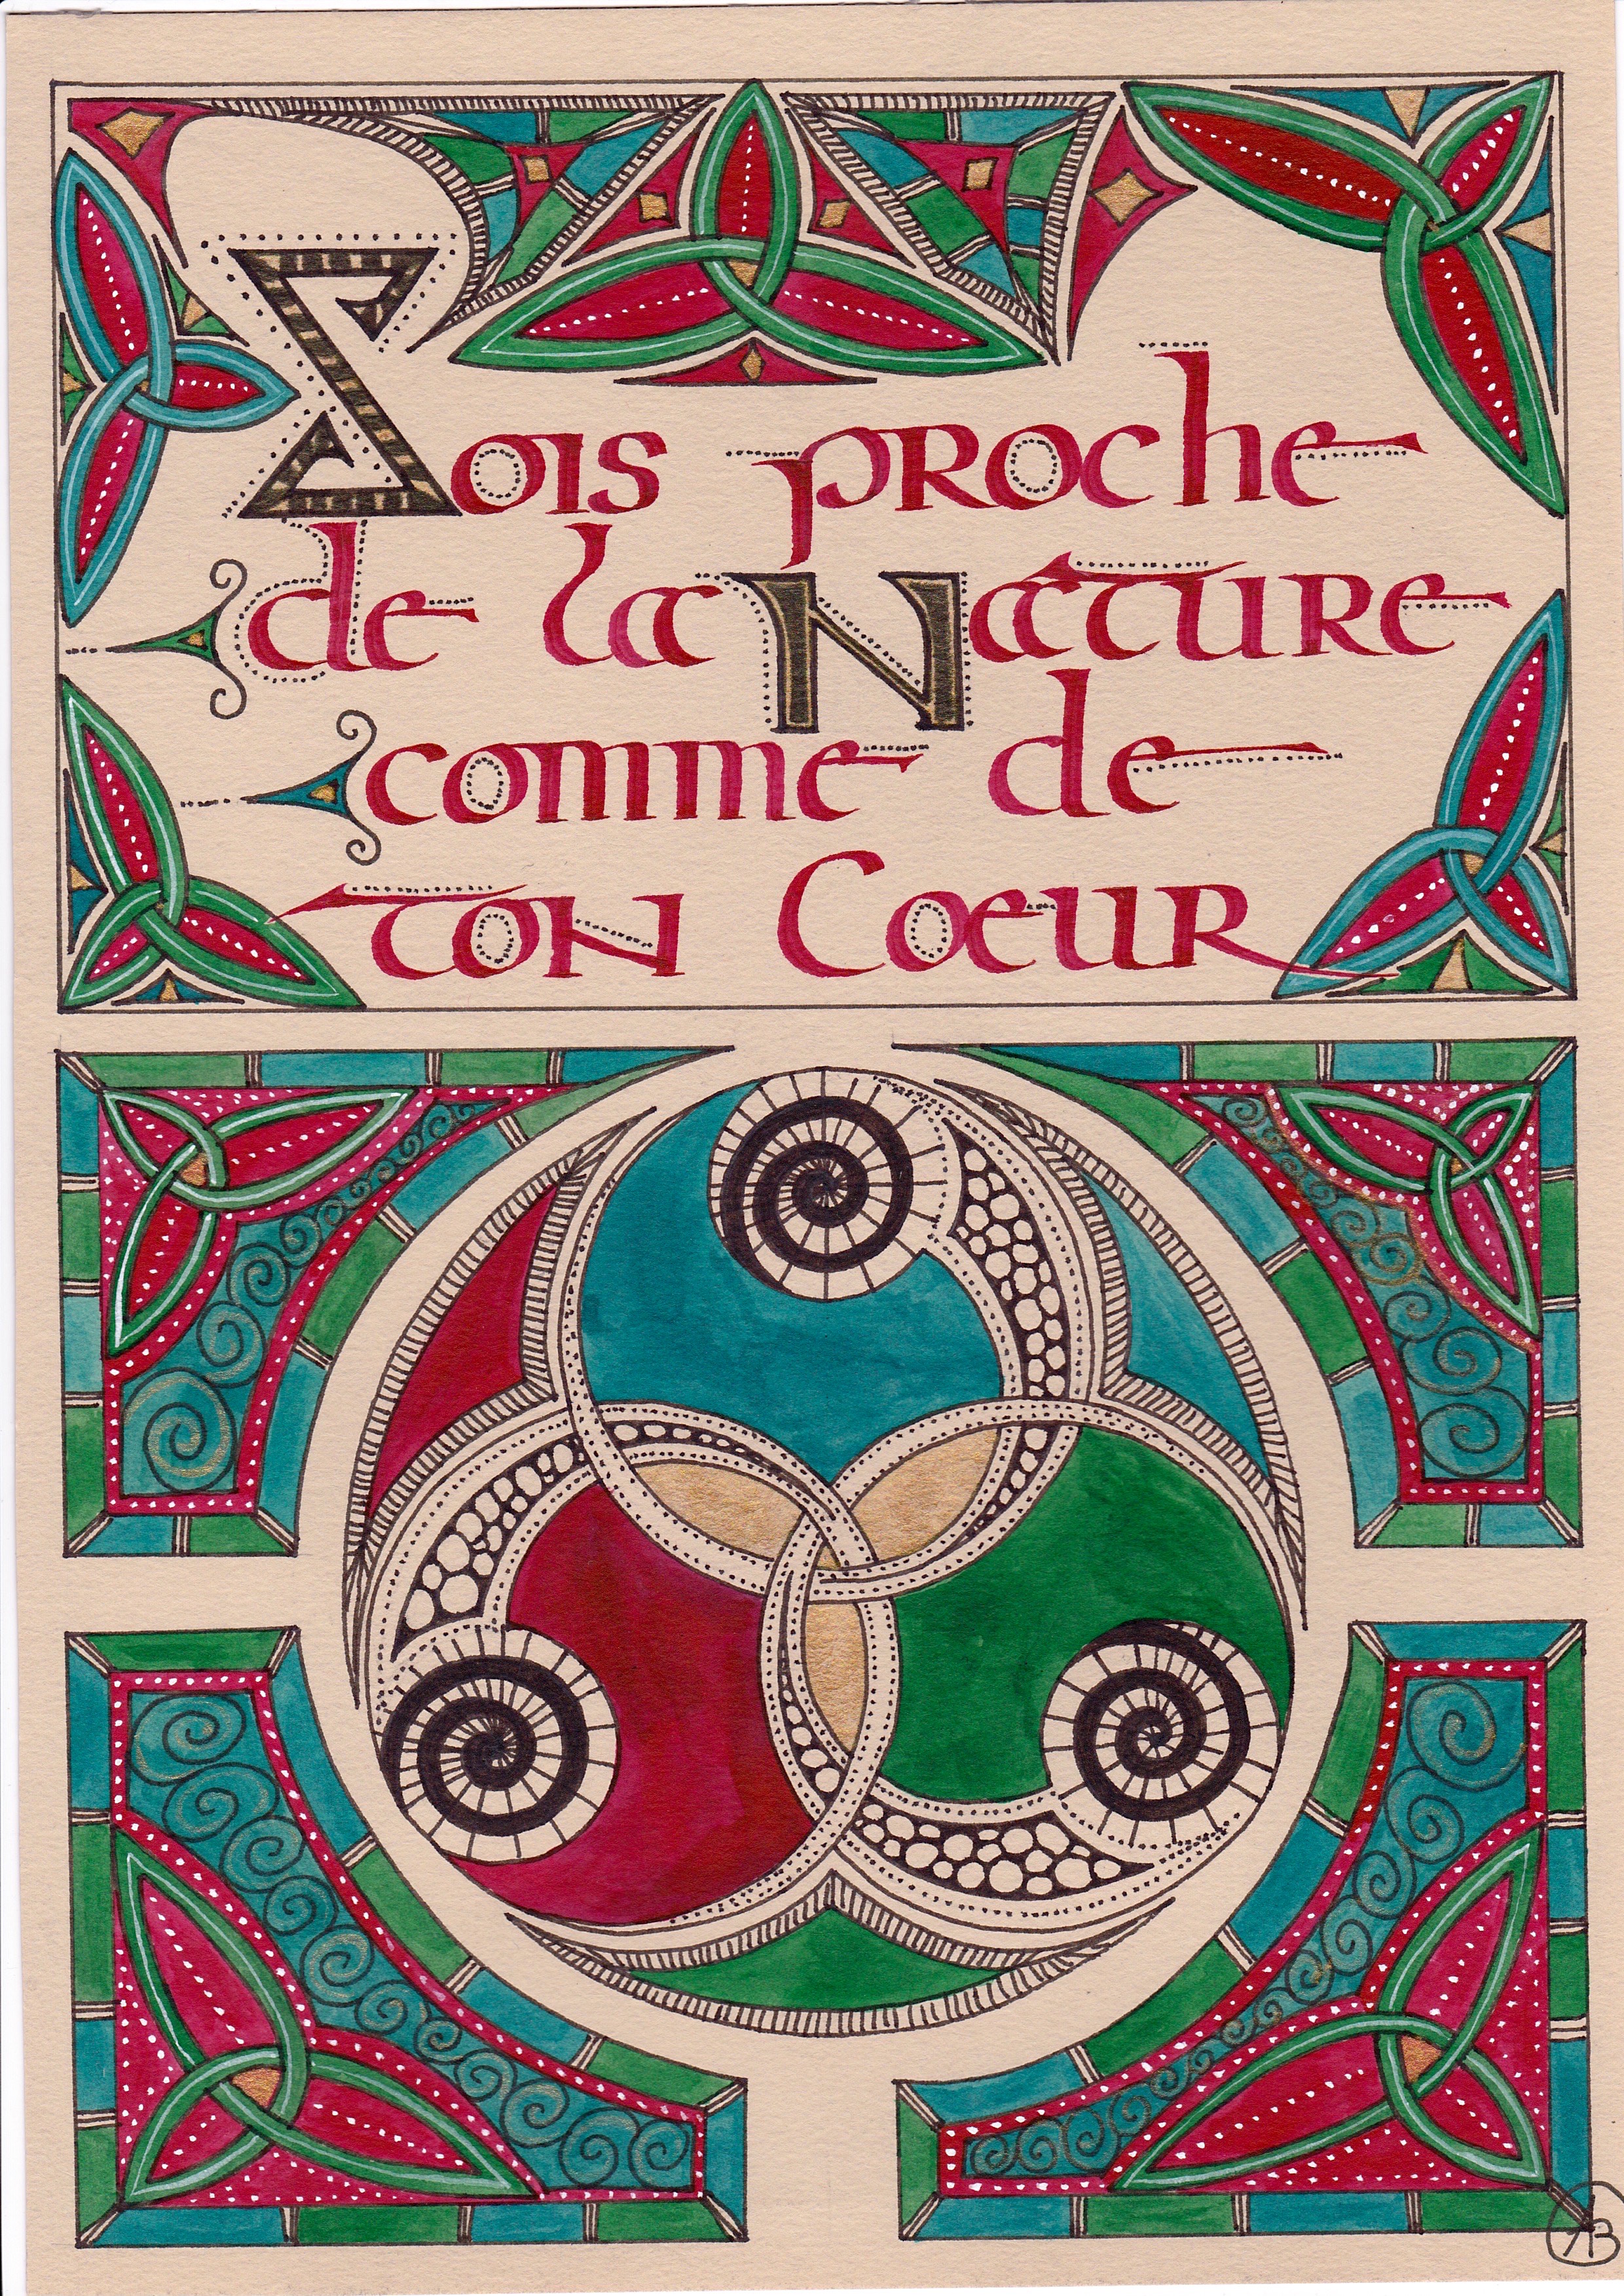 Sois proche
de la Nature
comme de
ton Coeur
AB